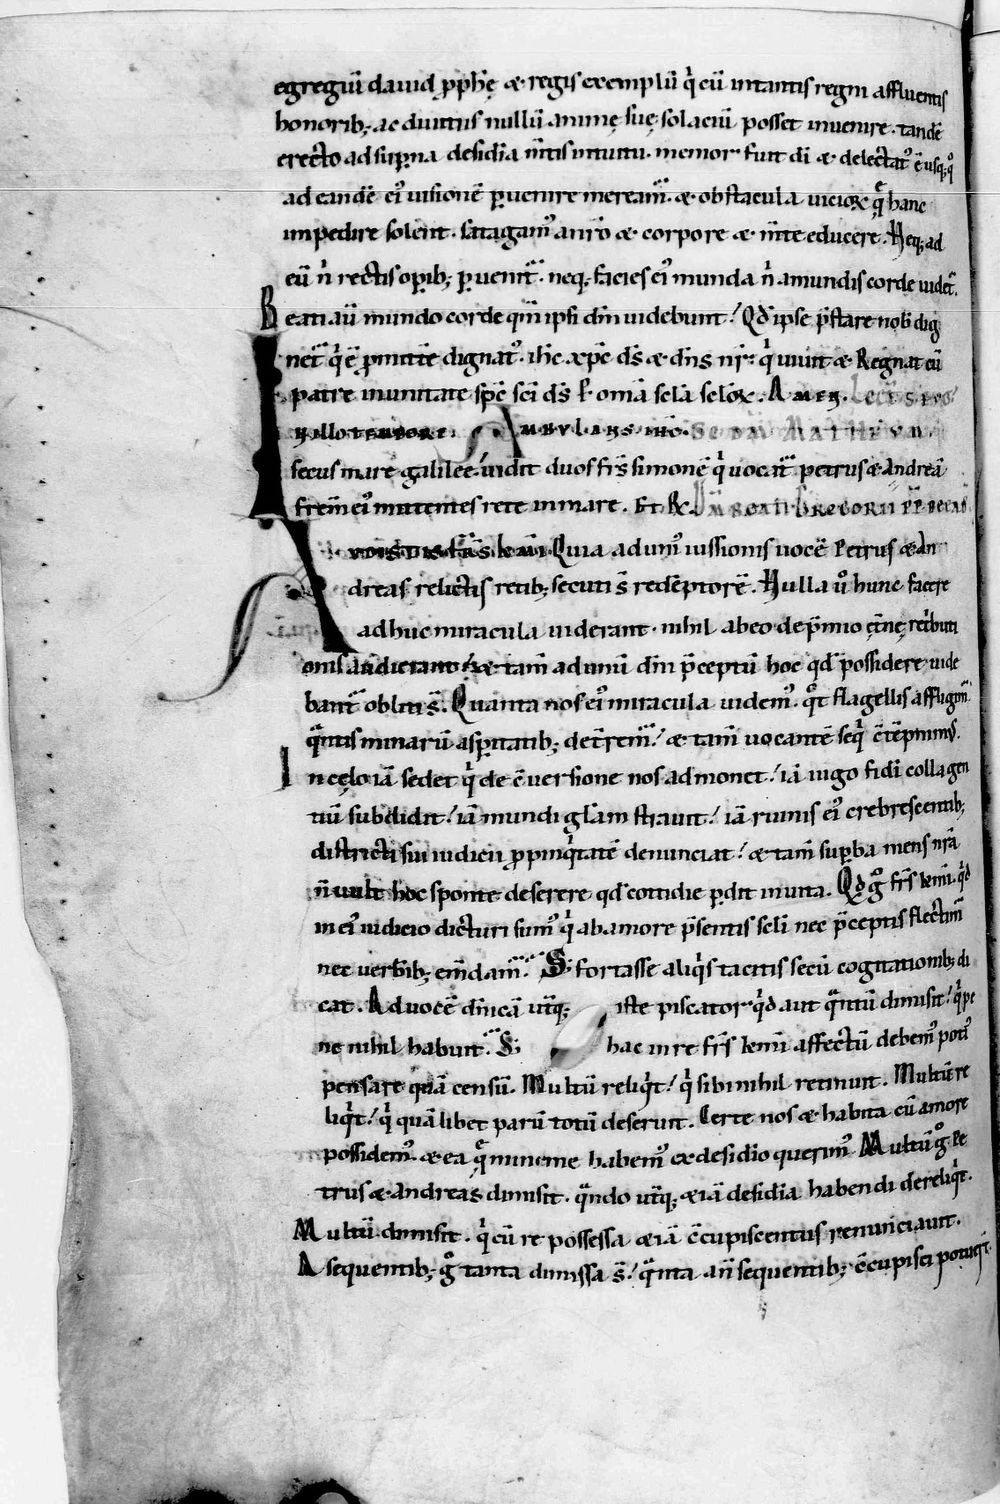 egregiū dauid ꝓphę & regis exemplū q̇ cū in tantis regni affluentis
honorib; ac diuitiis nullū animę suę solaciū posset inuenire . tandē
erecto ad supna desidia mtis intuitu . memor fuit di & delectat᾿ ē usq; q̊
ad eandē ei᾿ uisionē puenire meream᾿ . & obstacula uicioꝝ q̄ hanc
impedire solent . satagam᾿ anr̄o & corpore & m̄te educere . Neq; ad
eū n̄ rectis opib; puenit᾿ . neq; facies ei᾿ munda n̄ a mundis corde uidet᾿.
Beati aū mundo corde qm̄ ipsi dm̄ uidebunt / Qd̄ ipse p̄stare nob̄ dig
net᾿ q̇ ē ꝓmittē dignat᾿ . ih̄c xp̄c ds̄ & dn̄s nr̄ : q̇ uiuit & Regnat cū
patre in unitate sp̄c sc̄i ds̄ P omā scl̄a scl̄oꝝ . Amen . Lec̄
In illo tempore . Ambulans ih̄c . Sc̄dm̄ Matheum .
secus mare galileę uidit duos fr̄s simonē q̇ uocat᾿ petrus & Andreā
frem̄ ei᾿ mittentes rete in mare . Et R̄ .
Avdistis fr̄s km̄i Quia ad uni᾿ iussionis uocē Petrus & An
dreas relictis retib; secuti s̄ redēptorē . Nulla u᾿o hunc facere
adhuc miracula uiderant . nihil ab eo de p̄mio ęt̄nę ret᾿buti
onis audierant / & tam̄ ad unū dn̄i p̄ceptū hoc qd̄ possidere uide
bant᾿ obliti s̄ . Quanta nos ei᾿ miracula uidem᾿ . q̊t flagellis affligim᾿
q̄ntis minarū asp̱itatib; det̄rem᾿ / & tam̄ uocantē seq̇ ctēpnim᾿ .
In cęlo iā sedet q̇ de cuersione nos admonet / iā iugo fidi colla gen
tiū subdidit / iā mundi glām strauit / iā ruinis ei᾿ crebrescentib;
districti sui iudicii ꝓpinq̇tatē denunciat / & tam̄ supba mens nr̄a
n̄ uult hoc sponte deserere qd̄ cottidie pdit inuita . Qd̄ g̊ fr̄s km̄i . q̇d
in ei᾿ iudicio dicturi sum᾿ q̇ ab amore p̄sentis scl̄i nec p̄ceptis flectim᾿
nec uerbib; em̄dam᾿ . S; fortasse aliq̇s tacitis secū cogitationib; di
cat . Ad uocē dn̄icā ut̄q; iste piscator q̇d aut q̄ntū dimisit / q̇ pe
ne nihil habuit . S; hac in re fr̄s km̄i affectū debem᾿ poti᾿
pensare quā censū . Multū reliq̇t / q̇ sibi nihil retinuit . Multū re
liq̇t / q̇ quālibet parū totū deseruit . Certe nos & habita cū amore
possidem᾿ . & ea q̄ minime habem᾿ ex desidio querim᾿ Multū g̊ Pe
trus & Andreas dimisit . q̄ndo ut̄q; & iā desidia habendi dereliq̇t .
Multū dimisit . q̇ cū re possessa & iā c̄cupiscentiis renunciauit .
A sequentib; g̊ tanta dimissa s̄ / q̄nta an̄ sequentib; c̄cupisci potuer̄t .